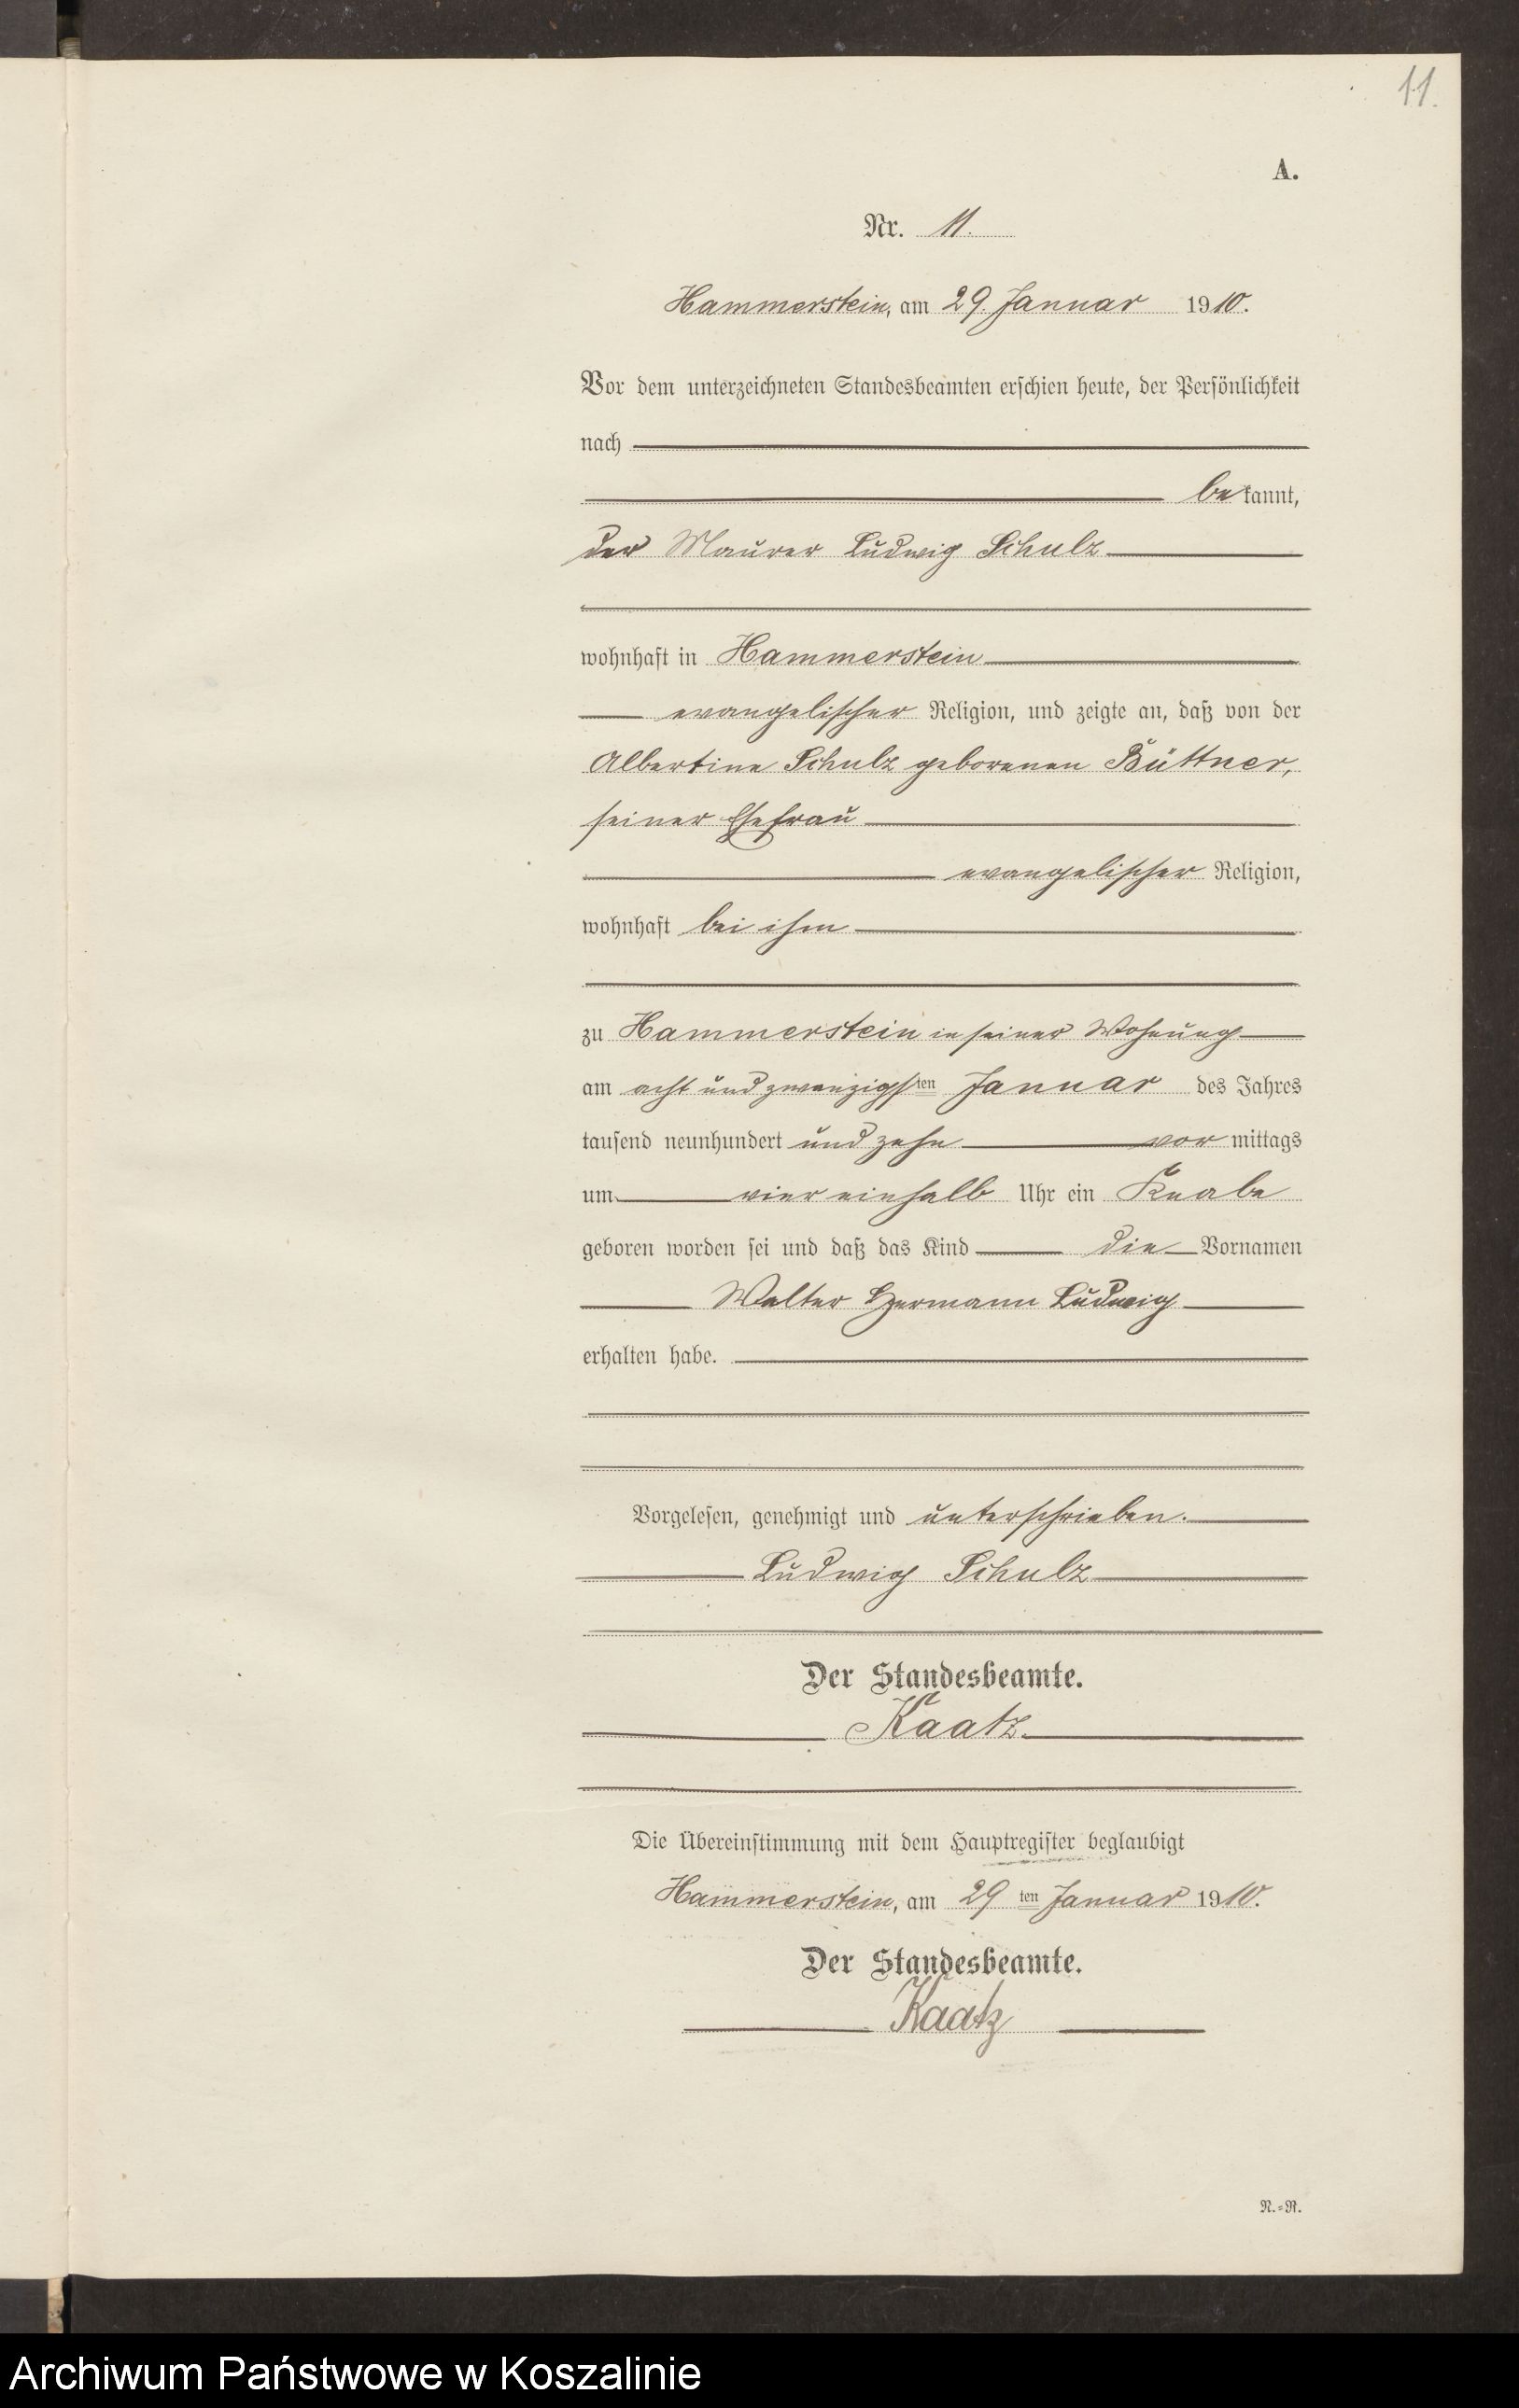 11.
A.
Nr. 11.
Hammerstein, am 29. Januar 1910.
Vor dem unterzeichneten Standesbeamten erschien heute, der Persönlichkeit
nach
bekannt,
der Maurer Ludwig Schulz
wohnhaft in Hammerstein
evangelischer Religion, und zeigte an, daß von der
Albertine Schulz geborenen Büttner,
seiner Ehefrau
evangelischer Religion,
wohnhaft bei ihm
zu Hammerstein in seiner Wohnung
am acht und zwanzigsten Januar des Jahres
tausend neunhundert und zehn vormittags
um vier einhalb Uhr ein Knabe
geboren worden sei und daß das Kind die Vornamen
Walter Hermann Ludwig
erhalten habe.
Vorgelesen, genehmigt und unterschrieben.
Ludwig Schulz
Der Standesbeamte.
Kaatz.
Die Übereinstimmung mit dem Hauptregister beglaubigt
Hammerstein, am 29ten Januar 1910.
Der Standesbeamte.
Kaatz
N.=R.
Archiwum Państwowe w Koszalinie